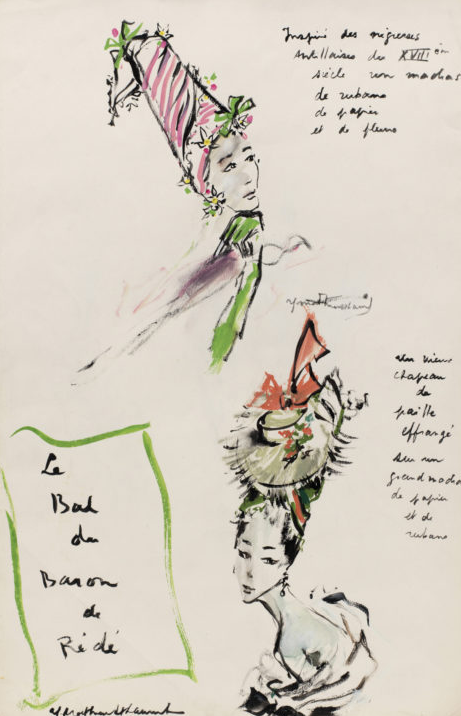 Inspiré des négresses
antillaises du XVIIIème
siècle un madras
de rubans
de papier
et de fleurs
Un vieux
chapeau
de
paille
effrangé
sur un
grand madras
de papier
et de
rubans
Le
Bal
du
Baron
de
Rédé